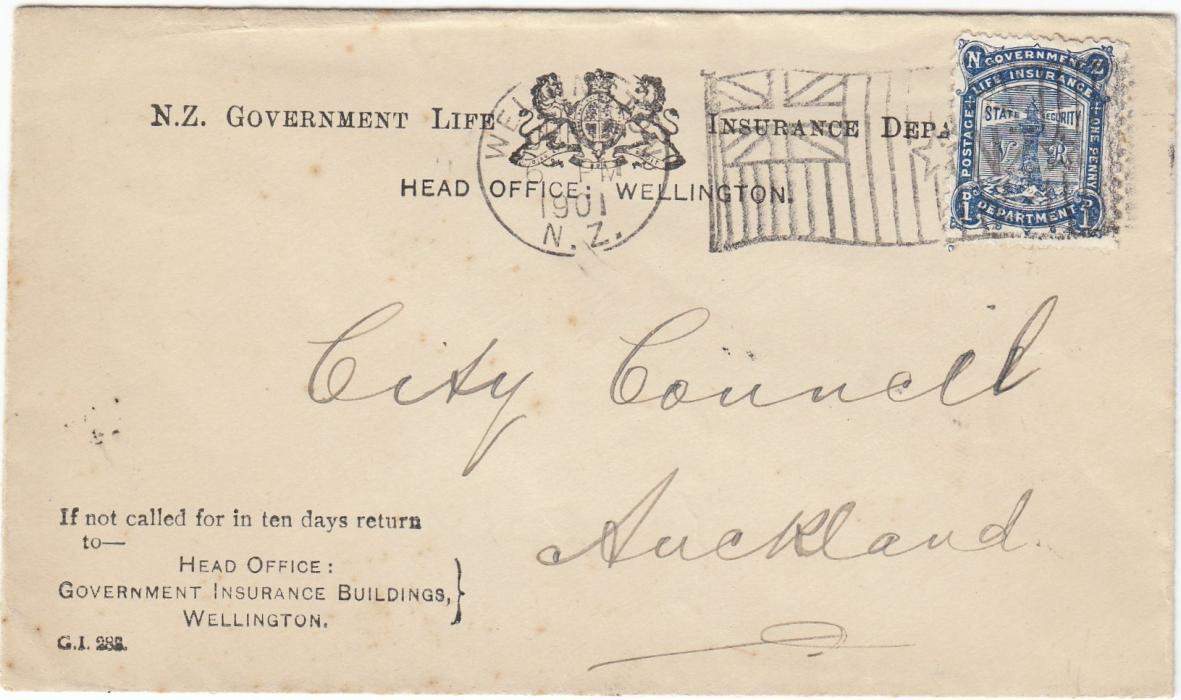 N.Z. GOVERNMENT LIFE INSURANCE DEPA
HEAD OFFICE: WELLINGTON.
WELLINGTON
PM
1901
N.Z.
N GOVERNMENT Z
LIFE INSURANCE
STATE SECURITY
V R
POSTAGE
ONE PENNY
1D DEPARTMENT 1D
City Council
Auckland.
If not called for in ten days return
to—
HEAD OFFICE:
GOVERNMENT INSURANCE BUILDINGS,
WELLINGTON.
G.I.